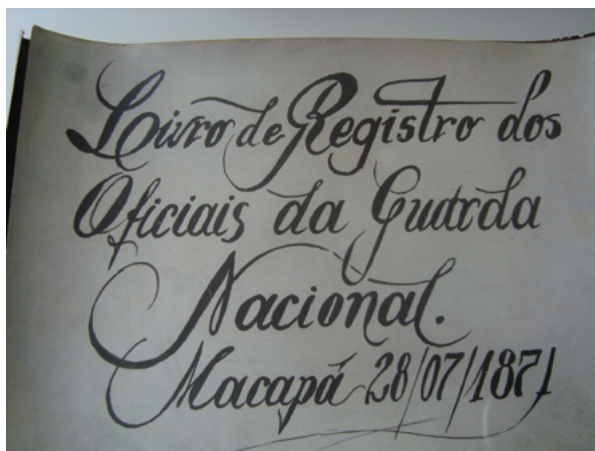 Livro de Registro dos
Oficiais da Guarda
Nacional.
Macapá 28/07/1871